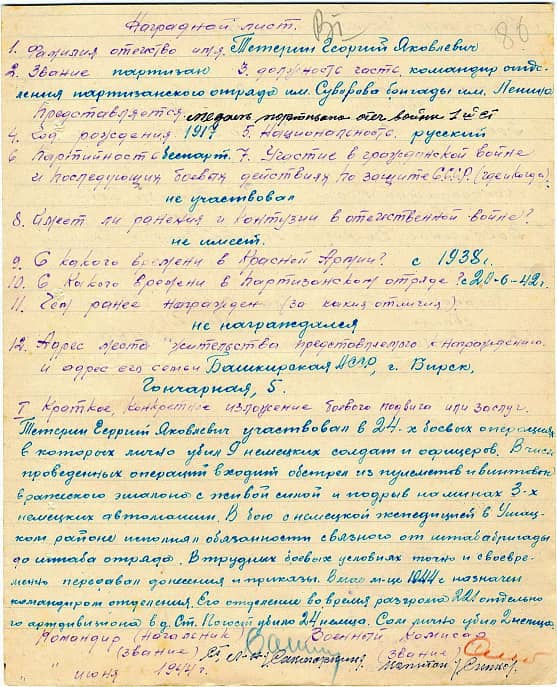 86
Наградной лист.
1. Фамилия отечество имя. Тетерин Георгий Яковлевич
2. Звание партизан 3. должность часть. командир отде-
ления партизанского отряда им. Суворова бригады им. Ленина
Представляется медаль партизана отеч войны 1 ст
4. Год рождения 1917 5. Национальность русский
6 Партийность беспарт. 7. Участие в гражданской войне
и последующих боевых действиях по защите СССР. (где и когда).
не участвовал
8. Имеет ли ранения и контузии в отечественной войне?
не имеет.
9. С какого времени в Красной Армии? с 1938г.
10. С какого времени в Партизанском отряде? с 20-6-42г.
11. Чем ранее награжден (за какия отличия).
не награждался
12. Адрес места жительства представляемого к награждению
и адрес его семьи Башкирская АССР, г. Бирск,
Гончарная, 5.
I Краткое, конкретное изложение боевого подвига или заслуг.
Тетерин Георгий Яковлевич участвовал в 24-х боевых операциях
в которых лично убил 9 немецких солдат и офицеров. В число
проведенных операций входит обстрел из пулеметов и винтовок
вражеского эшалона с живой силой и подрыв на минах 3-х
немецких автомашин. В бою с немецкой экспедицией в Ушац-
ком районе исполнял обязанности связного от штаба бригады
до штаба отряда. В трудных боевых условиях точно и своевре-
менно передавал донесения и приказы. В мае м-це 1944 г назначен
командиром отделения. Его отделение во время разгрома 221 отдельно-
го артдивизиона в д. Ст. Погост убило 24 немца. Сам лично убил 2 немца.
Командир (Начальник) Военной Комисар
(звание) Ст. Л-т (звание) Капитан
" " июня 1944г.